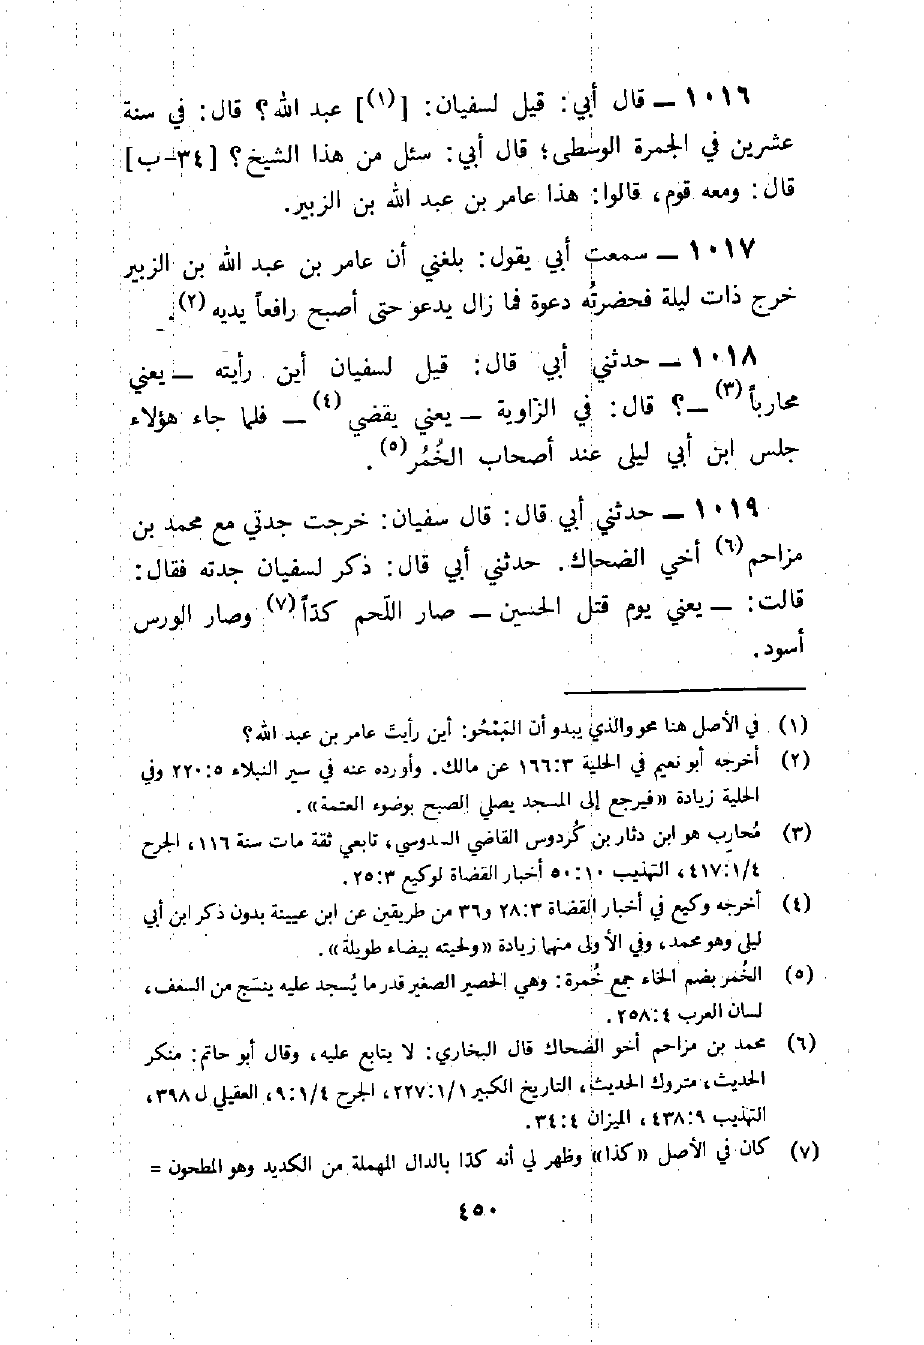 ١٠١٦ ــ قال أبي: قيل لسفيان: [(١)] عبد الله؟ قال: في سنة
عشرين في الجمرة الوسطى؛ قال أبي: سئل من هذا الشيخ؟ [٣٤-ب]
قال: ومعه قوم، قالوا: هذا عامر بن عبد الله بن الزبير.
١٠١٧ ــ سمعت أبي يقول: بلغني أن عامر بن عبد الله بن الزبير
خرج ذات ليلة فحضرتُه دعوة فما زال يدعو حتى أصبح رافعاً يديه(٢).
١٠١٨ ــ حدثني أبي قال: قيل لسفيان أين رأيته ــ يعني
محارباً(٣) ــ؟ قال: في الزّاوية ــ يعني يقضي(٤) ــ فلما جاء هؤلاء
جلس ابن أبي ليلى عند أصحاب الخُمُر(٥).
١٠١٩ ــ حدثني أبي قال: قال سفيان: خرجت جدتي مع محمد بن
مزاحم(٦) أخي الضحاك. حدثني أبي قال: ذكر لسفيان جدته فقال:
قالت: ــ يعني يوم قتل الحسين ــ صار اللّحم كدّاً(٧) وصار الورس
أسود.
(١) في الأصل هنا محو والذي يبدو أن المَمْحُو: أين رأيتَ عامر بن عبد الله؟
(٢) أخرجه أبو نعيم في الحلية ٣:١٦٦ عن مالك. وأورده عنه في سير النبلاء ٥:٢٢٠ وفي
الحلية زيادة «فيرجع إلى المسجد يصلي الصبح بوضوء العتمة».
(٣) مُحارِب هو ابن دثار بن كُردوس القاضي السدوسي، تابعي ثقة مات سنة ١١٦، الجرح
٤/١:٤١٧، التهذيب ١٠:٥٠ أخبار القضاة لوكيع ٣:٢٥.
(٤) أخرجه وكيع في أخبار القضاة ٣:٢٨ و٣٦ من طريقين عن ابن عيينة بدون ذكر ابن أبي
ليلى وهو محمد، وفي الأولى منهما زيادة «ولحيته بيضاء طويلة».
(٥) الخُمُر بضم الخاء جمع خُمرة: وهي الحصير الصغير قدر ما يُسجد عليه ينسَج من السعف،
لسان العرب ٤:٢٥٨.
(٦) محمد بن مزاحم أخو الضحاك قال البخاري: لا يتابع عليه، وقال أبو حاتم: منكر
الحديث، متروك الحديث، التاريخ الكبير ١/١:٢٢٧، الجرح ٤/١:٩، العقيلي ل ٣٩٨،
التهذيب ٩:٤٣٨، الميزان ٤:٣٤.
(٧) كان في الأصل «كذا» وظهر لي أنه كدّا بالدال المهملة من الكديد وهو المطحون =
٤٥٠